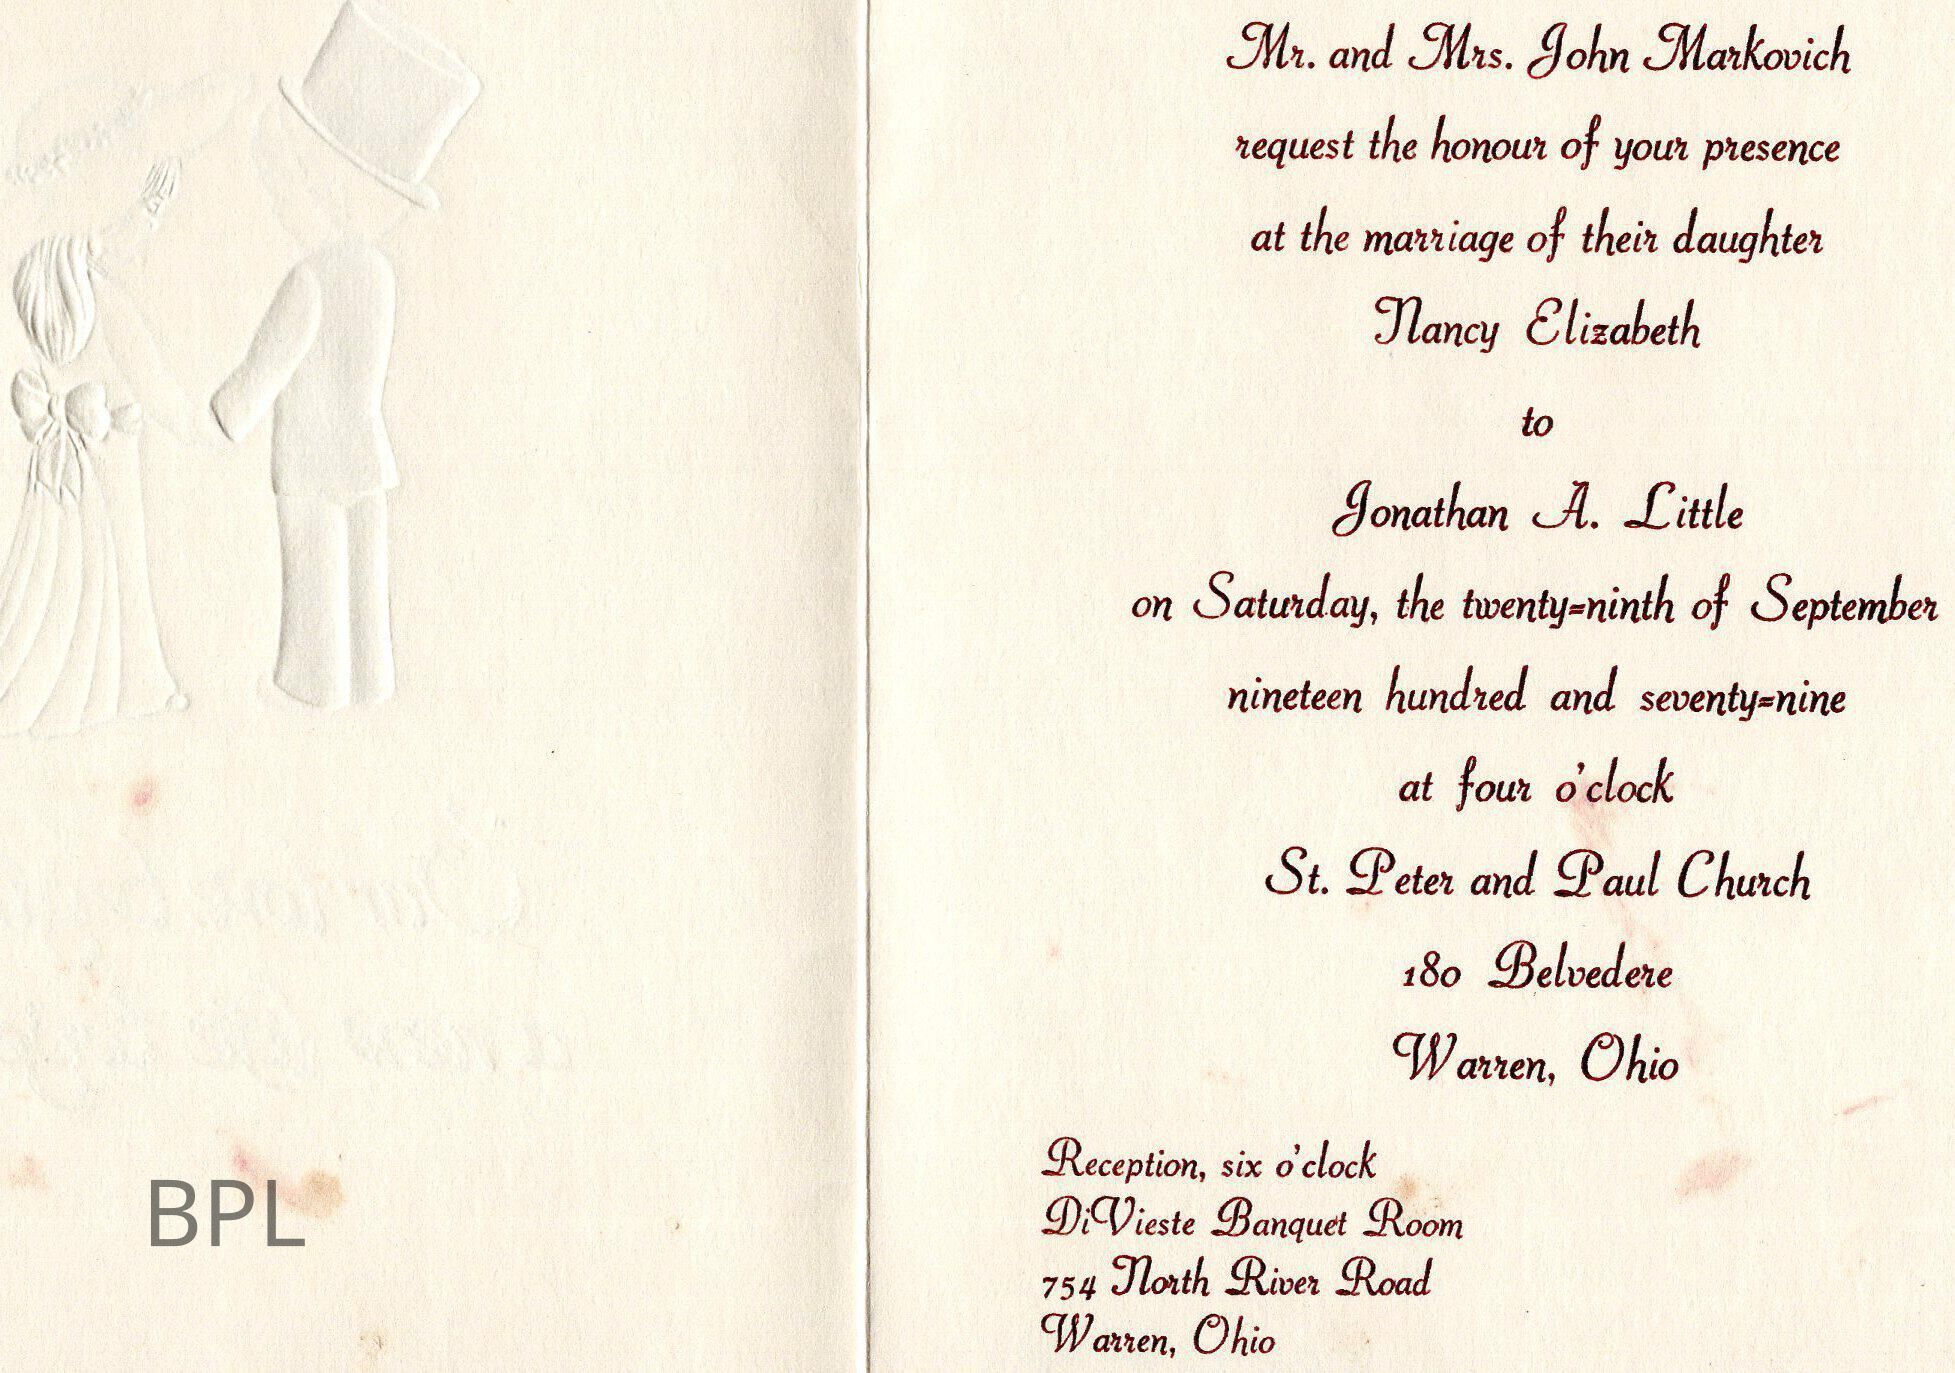 Mr. and Mrs. John Markovich
request the honour of your presence
at the marriage of their daughter
Nancy Elizabeth
to
Jonathan A. Little
on Saturday, the twenty=ninth of September
nineteen hundred and seventy=nine
at four o'clock
St. Peter and Paul Church
180 Belvedere
Warren, Ohio
Reception, six o'clock
DiVieste Banquet Room
754 North River Road
Warren, Ohio
BPL